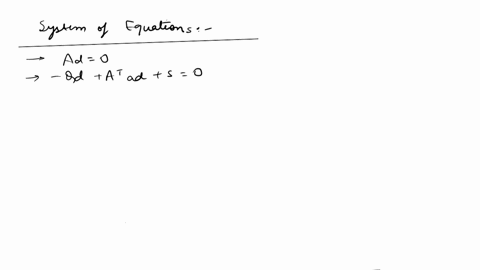 System of Equations:-
→ Ad = 0
→ -Qd + Aᵀ ad + s = 0